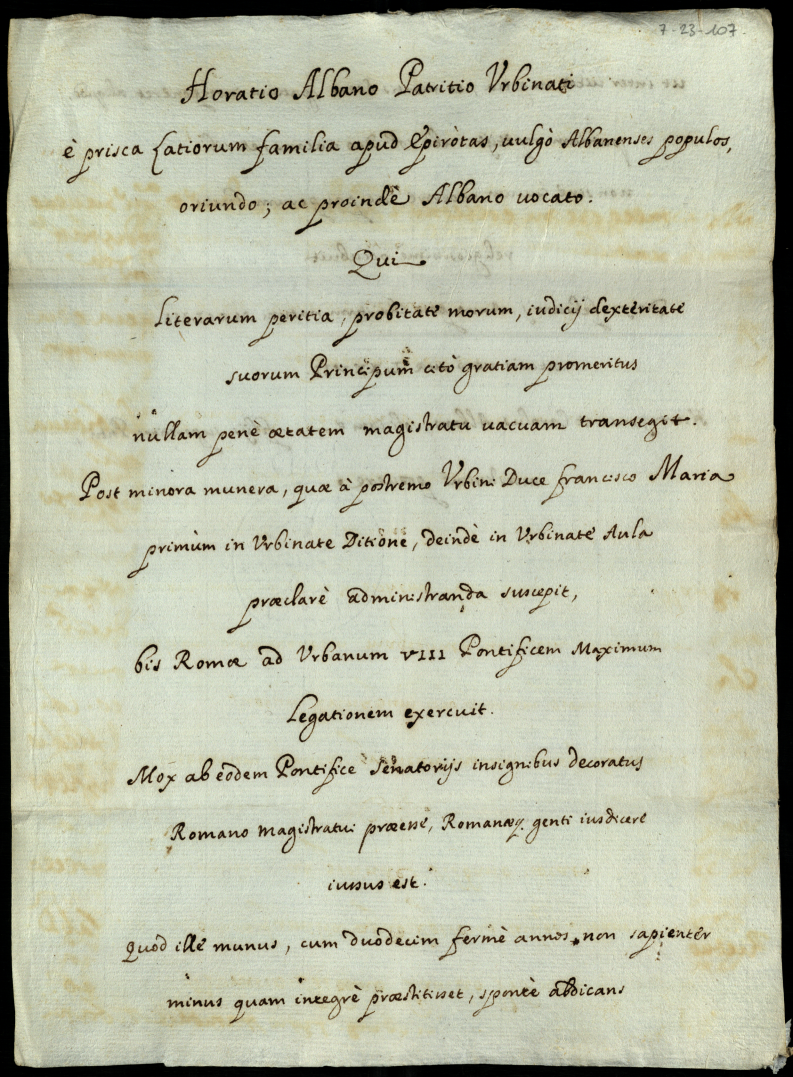 7-23-107.
Horatio Albano Patritio Vrbinati
è prisca Latiorum familia apud Epiròtas, uulgò Albanenses populos,
oriundo; ac proindè Albano uocato.
Qui
Literarum peritia, probitate morum, iudicij dexteritate
suorum Principum citò gratiam promeritus
nullam penè ætatem magistratu uacuam transegit.
Post minora munera, quæ à postremo Vrbini Duce francisco Maria
primùm in Vrbinate Ditione, deindè in Vrbinate Aula
præclarè administranda suscepit,
bis Romæ ad Vrbanum VIII Pontificem Maximum
Legationem exercuit.
Mox ab eodem Pontifice Senatorijs insignibus decoratus
Romano magistratui præesse, Romanæq. genti iusdicere
iussus est.
Quod ille munus, cum duodecim fermè annos non sapienter
minus quam integrè præstitisset, spontè abdicans